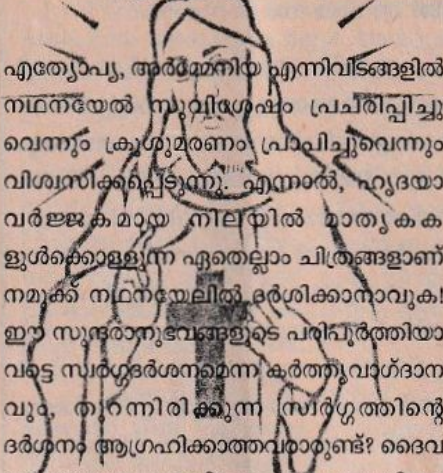 എത്യോപ്യ, അർമേനിയ എന്നിവിടങ്ങളിൽ
നഥനയേൽ സുവിശേഷം പ്രചരിപ്പിച്ചു
വെന്നും ക്രൂശുമരണം പ്രാപിച്ചുവെന്നും
വിശ്വസിക്കപ്പെടുന്നു. എന്നാൽ, ഹൃദയാ
വർജ്ജകമായ നിലയിൽ മാതൃകക
ളുൾക്കൊള്ളുന്ന ഏതെല്ലാം ചിത്രങ്ങളാണ്
നമുക്ക് നഥനയേലിൽ ദർശിക്കാനാവുക!
ഈ സുന്ദരാനുഭവങ്ങളുടെ പരിപൂർത്തിയാ
വട്ടെ സ്വർഗ്ഗദർശനമെന്ന കർത്തൃവാഗ്ദാന
വും, തുറന്നിരിക്കുന്ന സ്വർഗ്ഗത്തിന്റെ
ദർശനം ആഗ്രഹിക്കാത്തവരാരുണ്ട്? ദൈവ